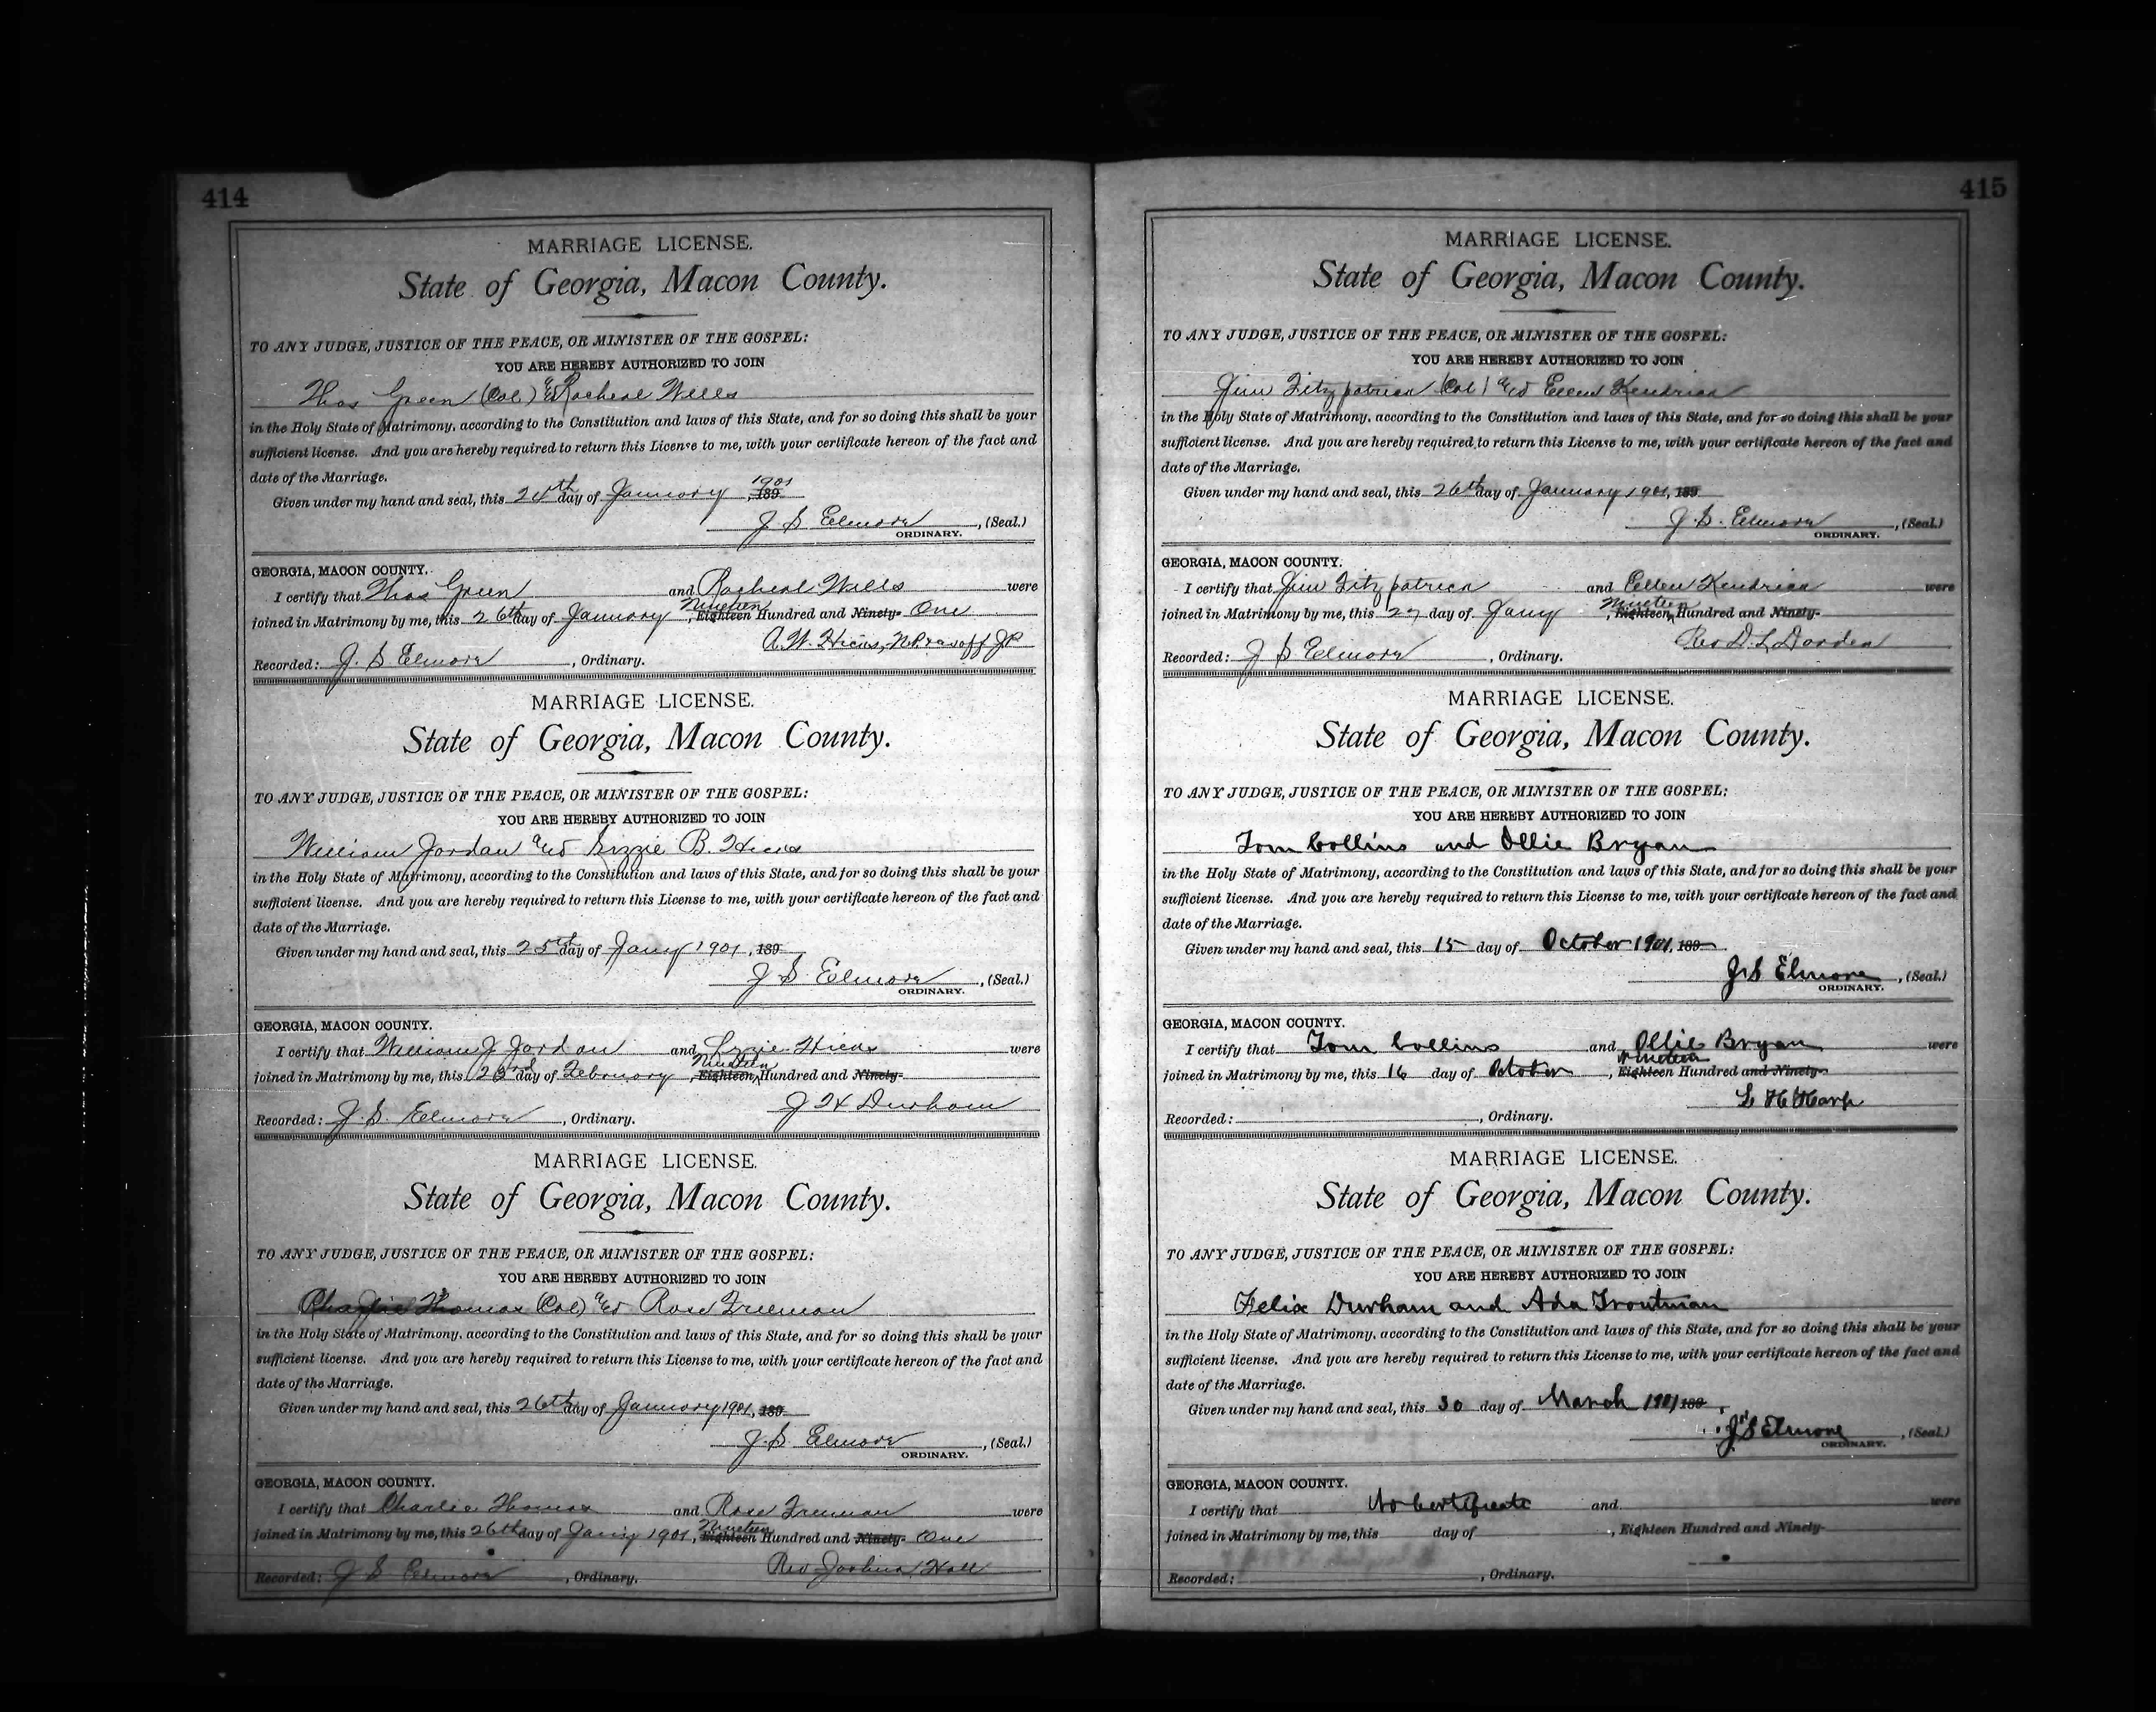 414
MARRIAGE LICENSE.
State of Georgia, Macon County.
TO ANY JUDGE, JUSTICE OF THE PEACE, OR MINISTER OF THE GOSPEL:
YOU ARE HEREBY AUTHORIZED TO JOIN
Thos Green (Col) and Racheal Wells
in the Holy State of Matrimony, according to the Constitution and laws of this State, and for so doing this shall be your
sufficient license. And you are hereby required to return this License to me, with your certificate hereon of the fact and
date of the Marriage.
1901
Given under my hand and seal, this 24th day of January, 189
J S Elmore, (Seal.)
ORDINARY.
GEORGIA, MACON COUNTY.
I certify that Thos Green and Racheal Wells were
Nineteen
joined in Matrimony by me, this 26th day of January, Eighteen Hundred and Ninety- One
A. W. Hicks, JP
Recorded: J. S Elmore, Ordinary.
MARRIAGE LICENSE.
State of Georgia, Macon County.
TO ANY JUDGE, JUSTICE OF THE PEACE, OR MINISTER OF THE GOSPEL:
YOU ARE HEREBY AUTHORIZED TO JOIN
William Jordan and Lizzie B. Hicks
in the Holy State of Matrimony, according to the Constitution and laws of this State, and for so doing this shall be your
sufficient license. And you are hereby required to return this License to me, with your certificate hereon of the fact and
date of the Marriage.
Given under my hand and seal, this 25th day of Jany 1901, 189
J S Elmore, (Seal.)
ORDINARY.
GEORGIA, MACON COUNTY.
I certify that William J Jordan and Lizzie Hicks were
Nineteen
joined in Matrimony by me, this 23rd day of February, Eighteen Hundred and Ninety-
J H Durham
Recorded: J. S. Elmore, Ordinary.
MARRIAGE LICENSE.
State of Georgia, Macon County.
TO ANY JUDGE, JUSTICE OF THE PEACE, OR MINISTER OF THE GOSPEL:
YOU ARE HEREBY AUTHORIZED TO JOIN
Charlie Thomas (Col) and Rose Freeman
in the Holy State of Matrimony, according to the Constitution and laws of this State, and for so doing this shall be your
sufficient license. And you are hereby required to return this License to me, with your certificate hereon of the fact and
date of the Marriage.
Given under my hand and seal, this 26th day of January 1901, 189
J. S. Elmore, (Seal.)
ORDINARY.
GEORGIA, MACON COUNTY.
I certify that Charlie Thomas and Rose Freeman were
Nineteen
joined in Matrimony by me, this 26th day of Jany 1901, Eighteen Hundred and Ninety- One
Rev Joshua Hall
Recorded: J S Elmore, Ordinary.
415
MARRIAGE LICENSE.
State of Georgia, Macon County.
TO ANY JUDGE, JUSTICE OF THE PEACE, OR MINISTER OF THE GOSPEL:
YOU ARE HEREBY AUTHORIZED TO JOIN
Jim Fitzpatrick (Col) and Ellen Kendrick
in the Holy State of Matrimony, according to the Constitution and laws of this State, and for so doing this shall be your
sufficient license. And you are hereby required to return this License to me, with your certificate hereon of the fact and
date of the Marriage.
Given under my hand and seal, this 26th day of January 1901, 189
J. S. Elmore, (Seal.)
ORDINARY.
GEORGIA, MACON COUNTY.
I certify that Jim Fitzpatrick and Ellen Kendrick were
Nineteen
joined in Matrimony by me, this 27 day of Jany, Eighteen Hundred and Ninety-
Rev D. L. Darden
Recorded: J S Elmore, Ordinary.
MARRIAGE LICENSE.
State of Georgia, Macon County.
TO ANY JUDGE, JUSTICE OF THE PEACE, OR MINISTER OF THE GOSPEL:
YOU ARE HEREBY AUTHORIZED TO JOIN
Tom Collins and Ollie Bryan
in the Holy State of Matrimony, according to the Constitution and laws of this State, and for so doing this shall be your
sufficient license. And you are hereby required to return this License to me, with your certificate hereon of the fact and
date of the Marriage.
Given under my hand and seal, this 15 day of October 1901, 189
J S Elmore, (Seal.)
ORDINARY.
GEORGIA, MACON COUNTY.
I certify that Tom Collins and Ollie Bryan were
Nineteen
joined in Matrimony by me, this 16 day of October, Eighteen Hundred and Ninety-
L H Harp
Recorded: , Ordinary.
MARRIAGE LICENSE.
State of Georgia, Macon County.
TO ANY JUDGE, JUSTICE OF THE PEACE, OR MINISTER OF THE GOSPEL:
YOU ARE HEREBY AUTHORIZED TO JOIN
Felix Durham and Ada Troutman
in the Holy State of Matrimony, according to the Constitution and laws of this State, and for so doing this shall be your
sufficient license. And you are hereby required to return this License to me, with your certificate hereon of the fact and
date of the Marriage.
Given under my hand and seal, this 30 day of March 1901 189
J S Elmore, (Seal.)
ORDINARY.
GEORGIA, MACON COUNTY.
I certify that No Certificate and were
joined in Matrimony by me, this day of , Eighteen Hundred and Ninety-
Recorded: , Ordinary.